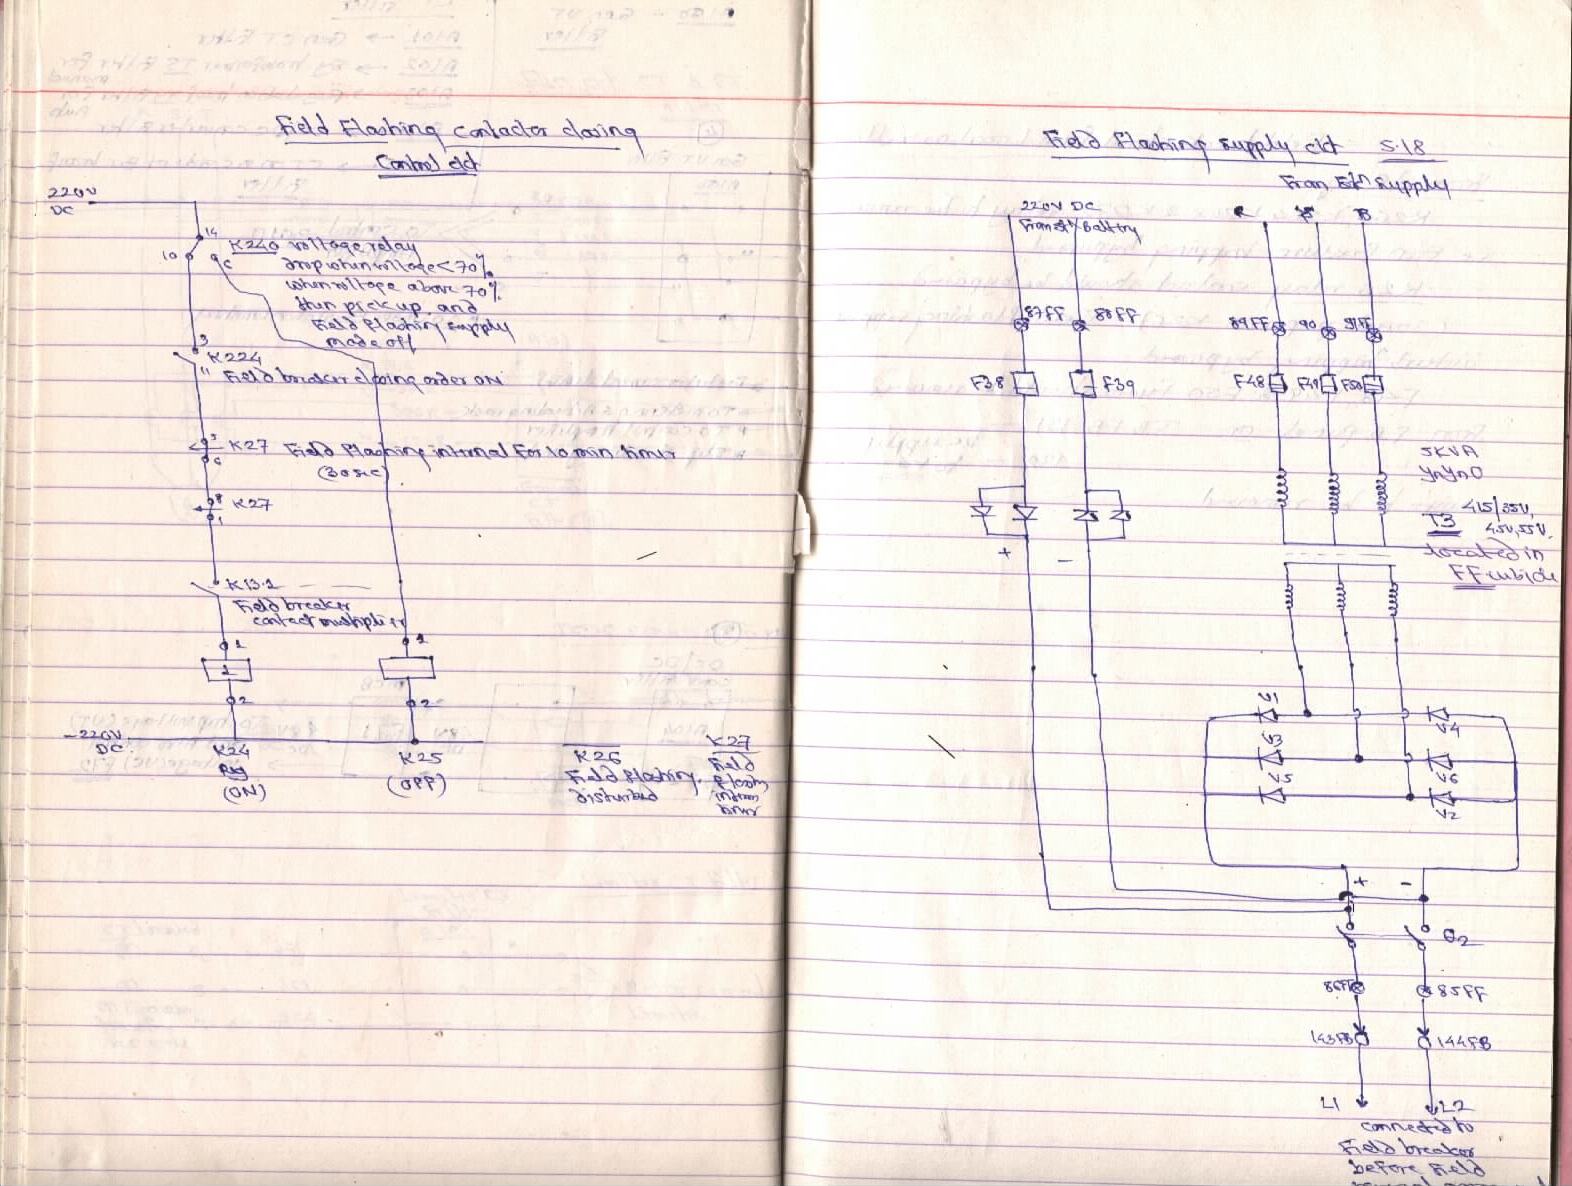 Field Flashing contactor closing
Control ckt
220V
DC
14
10
9c
K240 voltage relay
drop when voltage < 70%
when voltage above 70%
then pick up, and
Field flashing supply
made off
3
K224
11
Field breaker closing order ON
K27 Field Flashing interval For 10 min timer
6
(30sec)
8
K27
1
K13.2
Field breaker
contact multiplier
1
1
2
2
-220V
DC
K24
(ON)
K25
(OFF)
K26
Field flashing
disturbed
K27
Field
flash
timer
Field Flashing supply ckt S.18
From Stn supply
220V DC
From Stn Battery
R
B
87FF
88FF
89FF
90
91FF
F38
F39
F48
F49
F50
5KVA
YnYn0
T3
415/35V,
45V,55V.
located in
FF cubicle
+
-
V1
V4
V3
V6
V5
V2
+
-
Q2
86FF
85FF
143FB
144FB
L1
L2
connected to
Field breaker
before Field